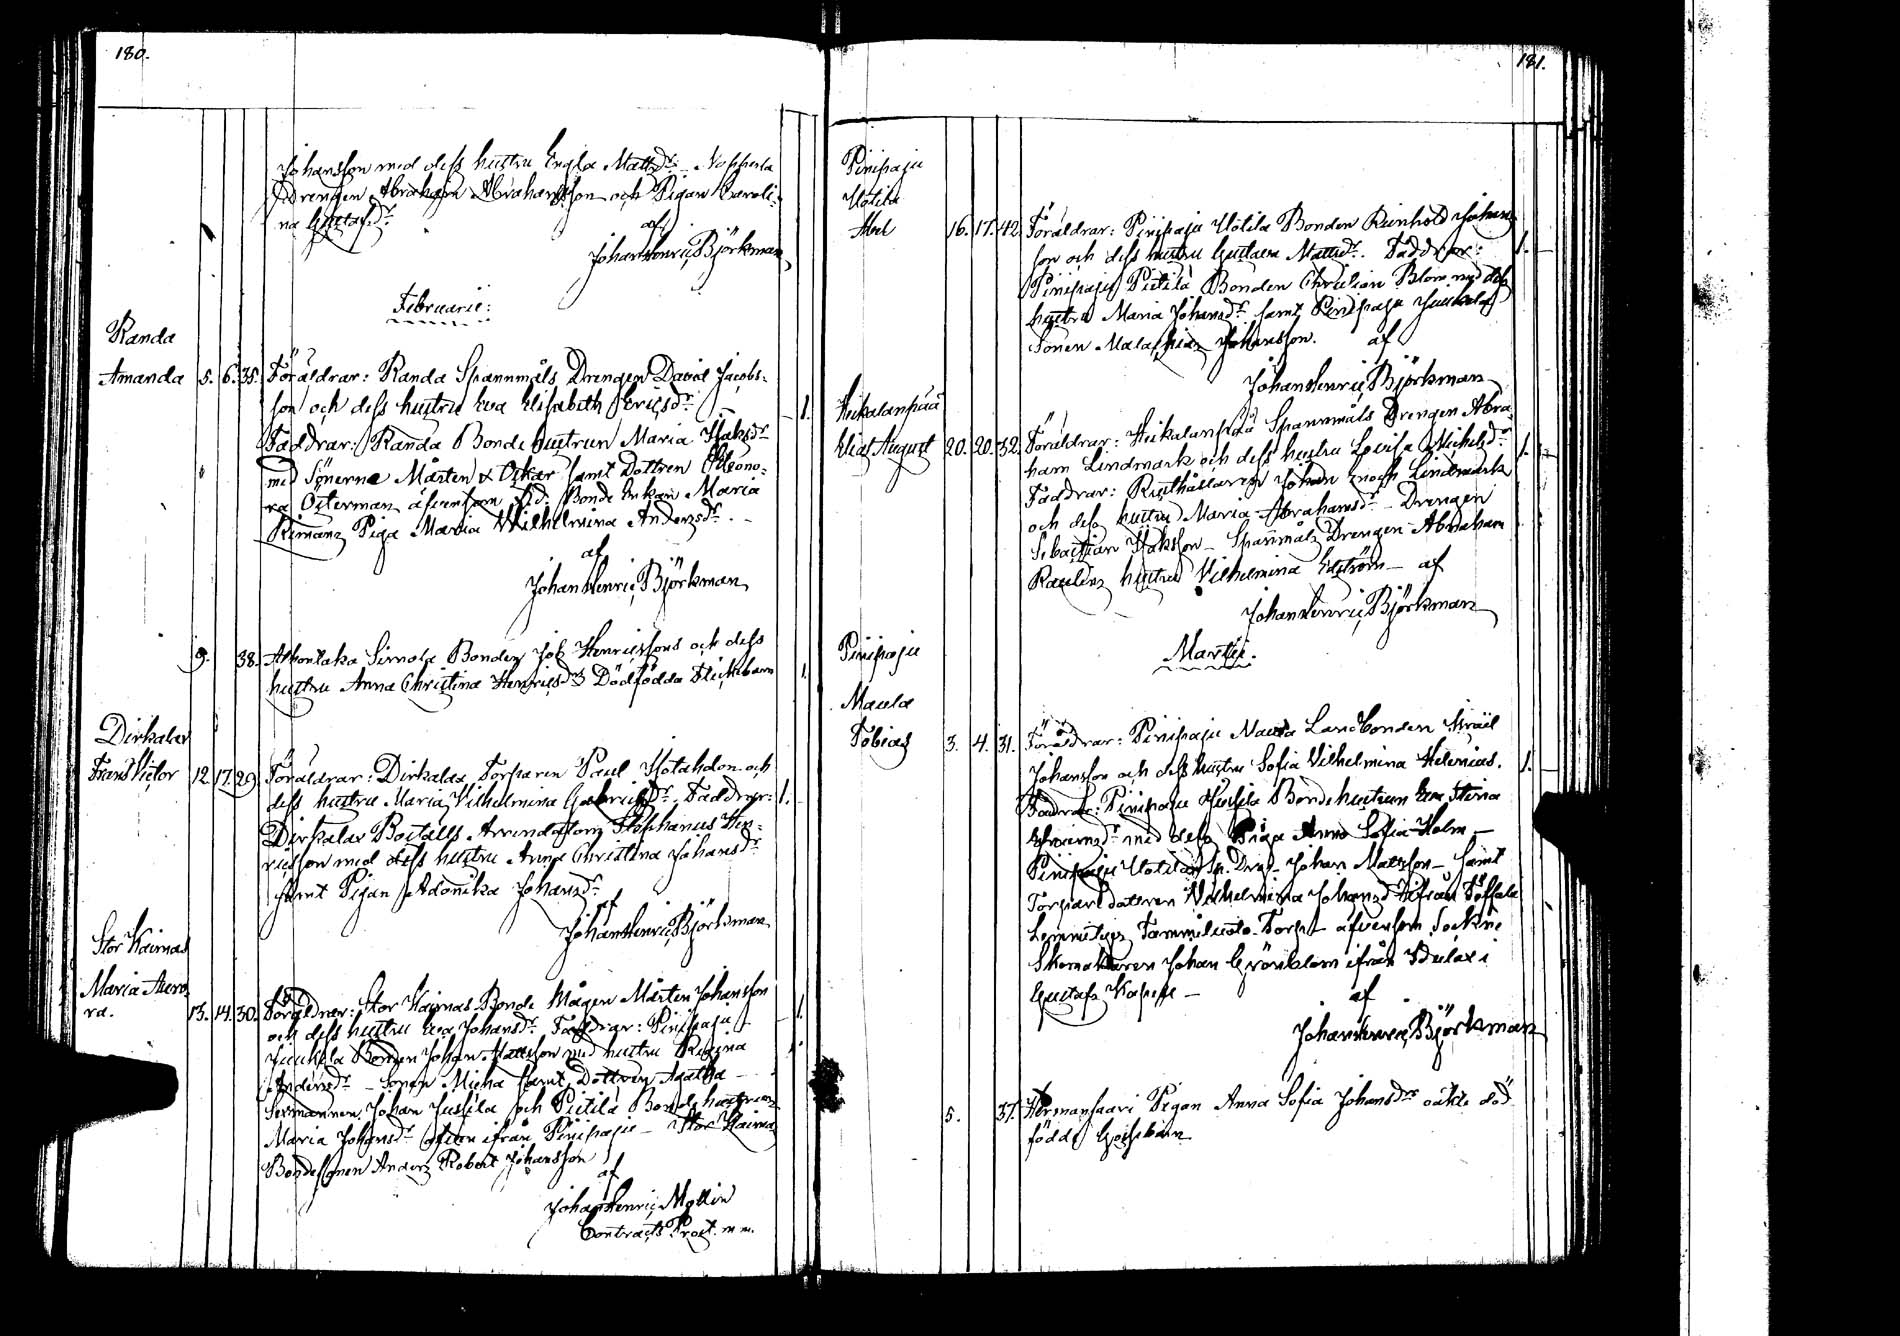 180.
Johansson med dess hustru Engla Mattsdr. - Nopperla
Drengen Abraham Abrahamsson och Pigan Caroli-
na Gustafsdr.
af
Johan Henric Björkman
Februarii:
Randa
Amanda 5. 6. 35. Föräldrar: Randa Spannmåls Drengen David Jacobs-
son och dess hustru Eva Elisabeth Ericsdr. 1.
Faddrar: Randa Bonde hustrun Maria Isaksdr
med Sönerne Mårten & Oskar samt Dottren Eleono-
ra Österman äfvensom Bonde Enkan Maria
Piga Maria Wilhelmina Andersdr.
af
Johan Henric Björkman
9. 38. Sirnola Bonden Job Henricssons och dess
hustru Anna Christina Henricsdrs Dödfödda Flickebarn 1.
Dirkalax
Frans Victor 12. 17. 29. Föräldrar: Dirkalax Torparen Paul och
dess hustru Maria Vilhelmina Gabrielsdr. Faddrar: 1.
Dirkalax Boställs Arrendatorn Stephanus Hen-
ricsson med dess hustru Anna Christina Johansdr
samt Pigan Adonika Johansdr.
af
Johan Henric Björkman
Stor Kairnas
Maria Auro-
ra. 13. 14. 30. Föräldrar: Stor Kairnas Bonde Mågen Mårten Johansson
och dess hustru Eva Johansdr. Faddrar: Pinipaju 1.
Juukola Bonden Johan Mattsson med hustru Regina
Andersdr - Sonen Micha samt Dottren Agatha -
Johan Jussila och Pietilä Bonde hustrun
Maria Johansdr ifrån Pinipaju - Stor Kairnas
Bondesonen Anders Robert Johansson
af
Johan Henric Mollin
Contracts Prost. m m.
181.
Pinipaju
Uotila
Abel 16. 17. 42. Föräldrar: Pinipaju Uotila Bonden Reinhold Johans-
son och dess hustru Gustava Mattsdr. Faddrar: 1.
Pinipaju Pietilä Bonden Christian Blom med dess
hustru Maria Johansdr samt Pinipaju Juukola
Sonen Malachias Johansson. af
Johan Henric Björkman
Heikalanpää
Elias August 20. 20. 32. Föräldrar: Heikalanpää Spannmåls Drengen Abra-
ham Lindmark och dess hustru Lovisa Michelsdr. 1.
Faddrar: Rusthållaren Johan Enoch Lindmark
och dess hustru Maria Abrahamsdr - Drengen
Sebastian Isaksson - Spanmåls Drengen Abraham
hustru Vilhelmina Edström - af
Johan Henric Björkman
Martii.
Pinipaju
Maula
Tobias 3. 4. 31. Föräldrar: Pinipaju Maula Landbonden Israel
Johansson och dess hustru Sofia Vilhelmina Helenius. 1.
Faddrar: Pinipaju Jussila Bonde hustrun Eva Stina
Efraimsdr med dess Piga Anna Sofia Holm -
Pinipaju Uotilas Sp. Dreng Johan Mattsson - samt
Torpare dottren Vilhelmina Johansdr ifrån Töffsala
Tammiluoto Torp - äfvensom Sockne
Skomakaren Johan Grönblom ifrån i
Gustafs Kapell -
af
Johan Henric Björkman
5. 37. Hermansaari Pigan Anna Sofia Johansdrs oäkta död-
födde Gossebarn